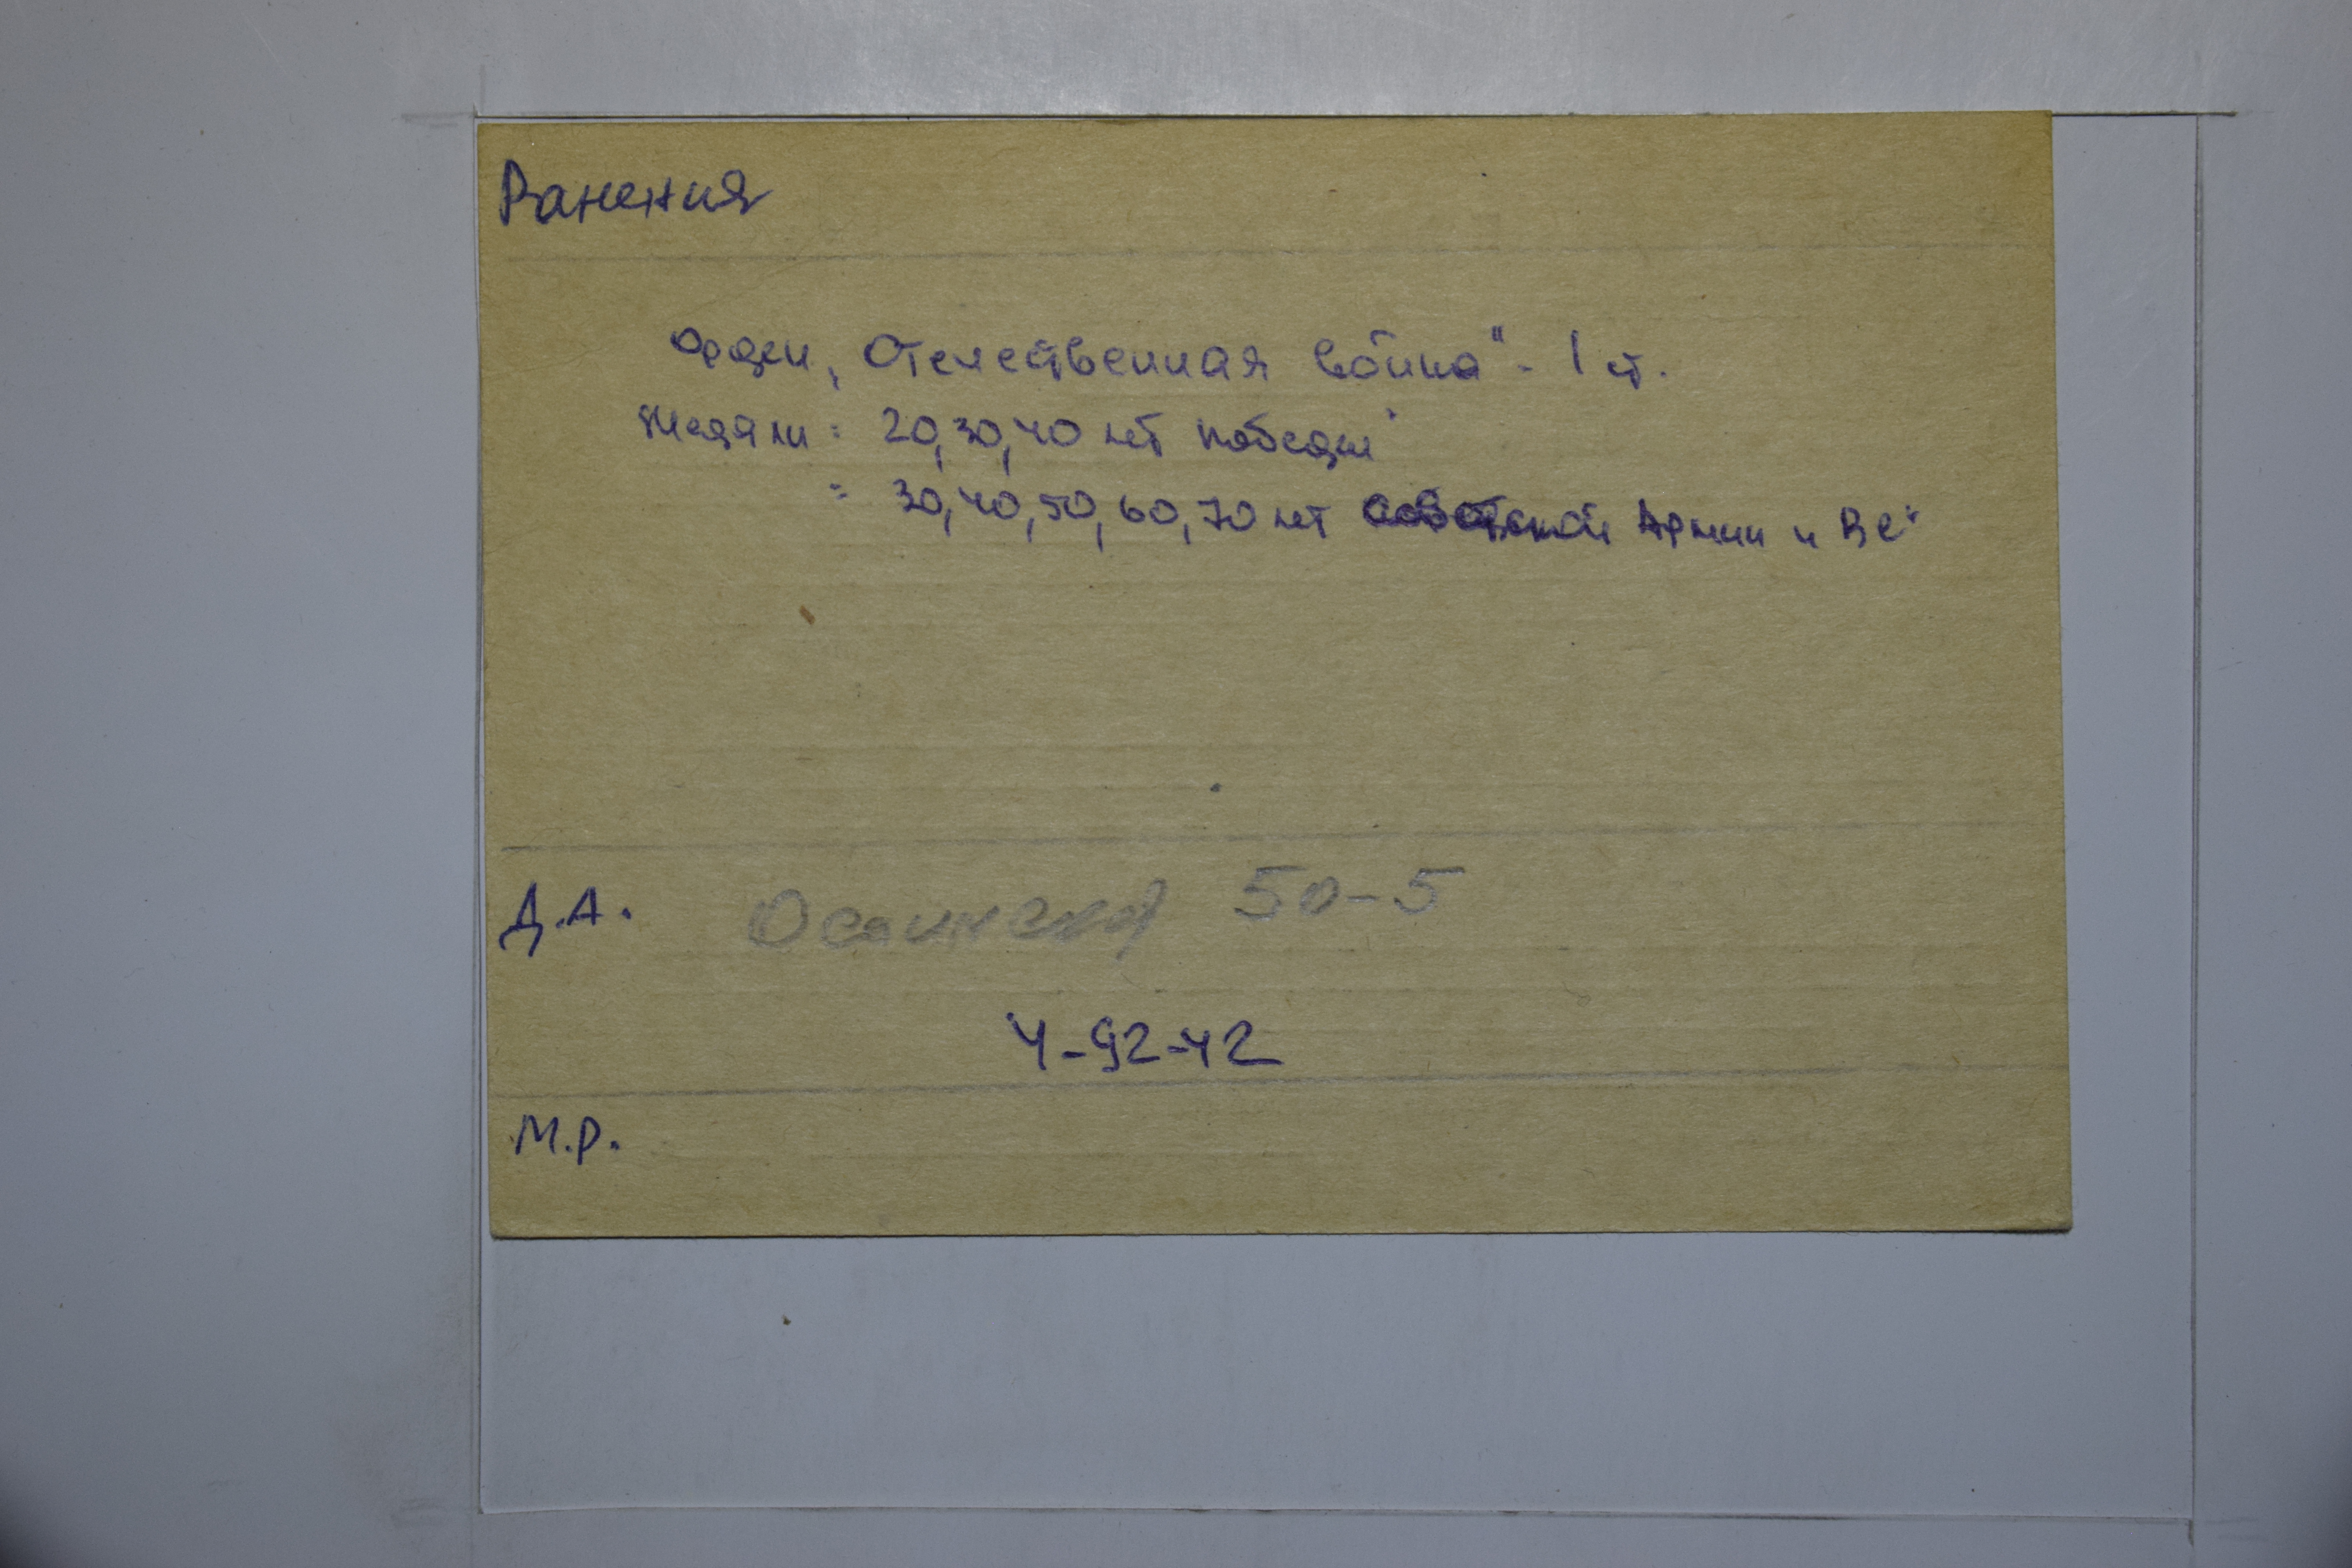 Ранения
Орден „Отечественная война“ - 1 ст.
Медали: 20, 30, 40 лет победы"
= 30, 40, 50, 60, 70 лет советской Армии и ВС"
Д.А. 50-5
4-92-42
М.Р.